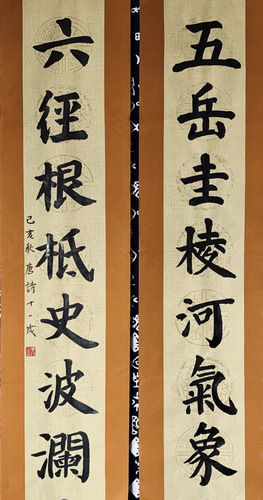 五岳圭棱河氣象
六径根柢史波瀾
己亥秋 唐詩 十一歲